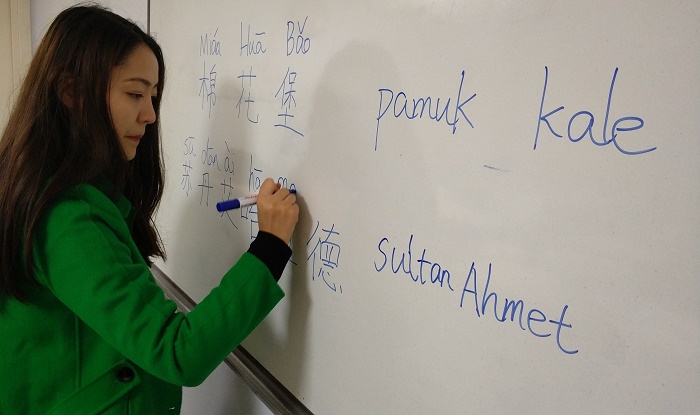 Mián Huā Bǎo
棉 花 堡
pamuk kale
sū dan ài hā
苏 丹 艾 哈 德
sultan Ahmet